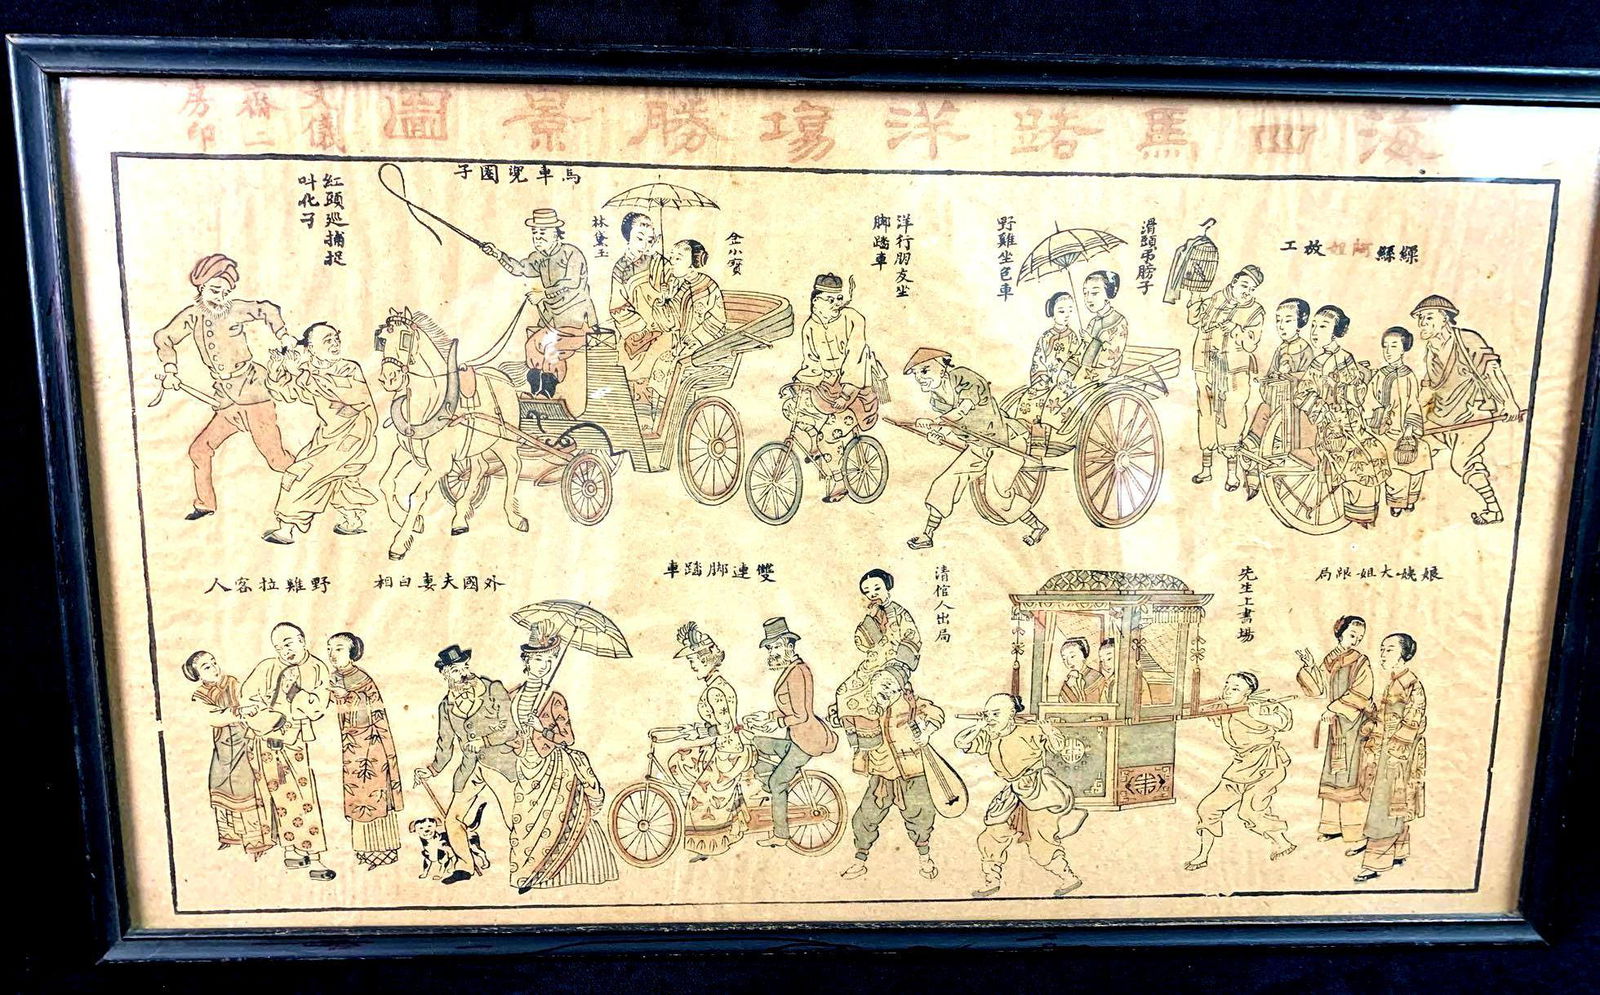 海四馬路洋塲勝景圖
文儀
齋二
房印
繅絲阿姐放工
滑頭弔膀子
野雞坐包車
洋行朋友坐
脚踏車
金小寳
林黛玉
馬車兜圈子
紅頭巡捕捉
叫化子
娘姨大姐跟局
先生上書場
清倌人出局
雙連脚踏車
外國夫妻白相
野雞拉客人